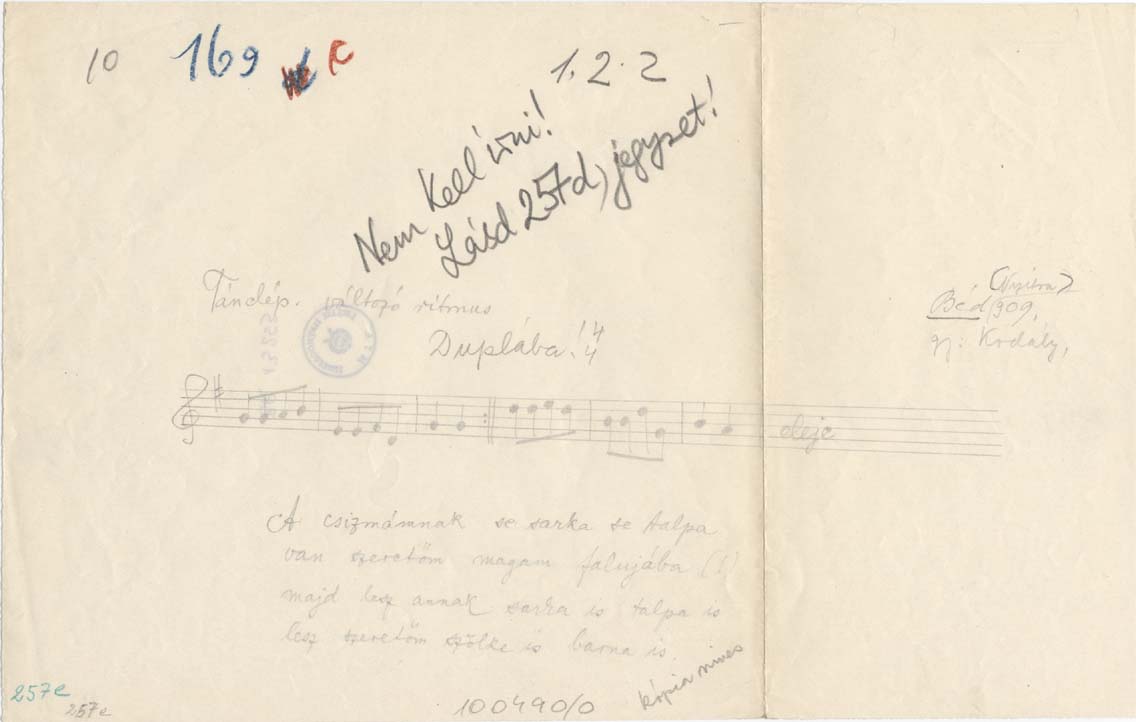 10
169
c
1. 2. 2
Nem kell írni!
Lásd 257d) jegyzet!
Tánclép. változó ritmus
Duplába! 4/4
(Nyitra)
Béd 909,
gy. Kodály,
eleje
A csizmámnak se sarka se talpa
van szeretőm magam falujába (!)
majd lesz annak sarka is talpa is
lesz szeretőm szőke is barna is
kópia nincs
257e
257e
100490/0